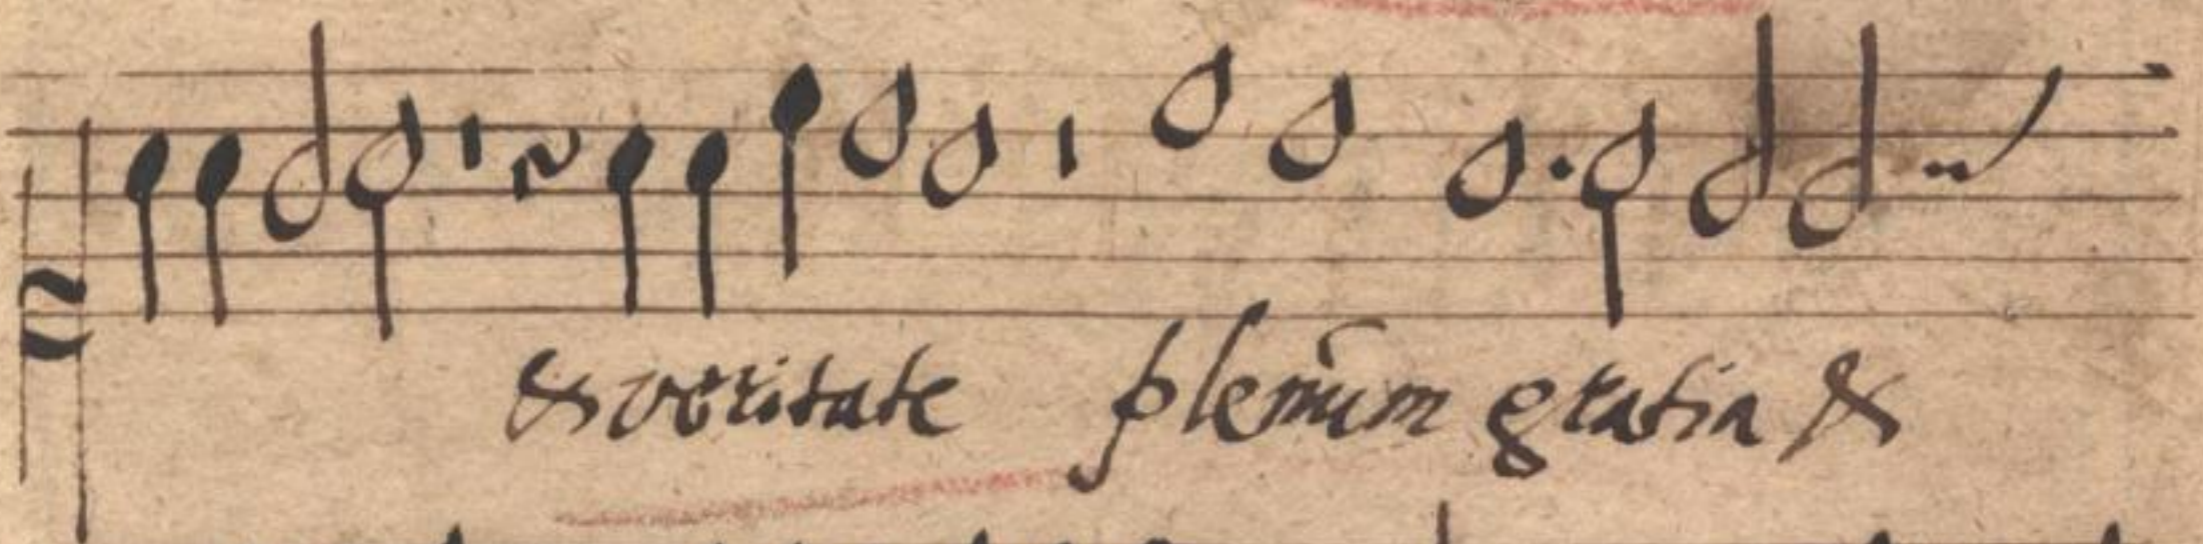 & veritate plenum gratia &